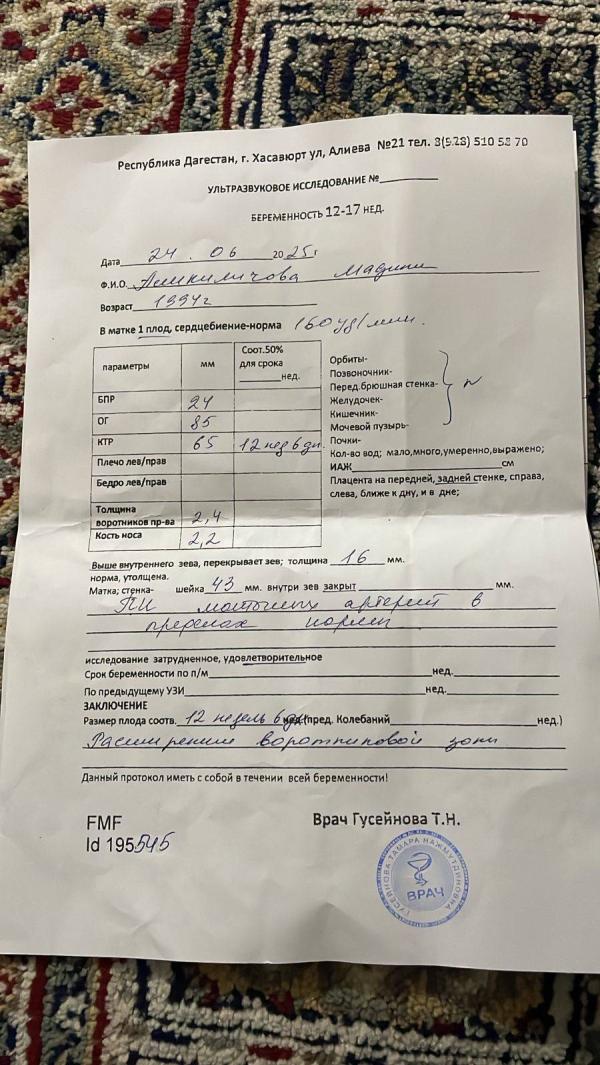 Республика Дагестан, г. Хасавюрт ул, Алиева №21 тел. 8(928) 510 58 70
УЛЬТРАЗВУКОВОЕ ИССЛЕДОВАНИЕ №
БЕРЕМЕННОСТЬ 12-17 НЕД.
Дата 24 . 06 2025 г
Ф.И.О. Мадина
Возраст 1994г
В матке 1 плод, сердцебиение-норма 160 уд/мин.
параметры мм Соот.50% для срока нед.
БПР 24
ОГ 85
КТР 65 12 нед 6 дн.
Плечо лев/прав
Бедро лев/прав
Толщина воротников пр-ва 2,4
Кость носа 2,2
Орбиты-
Позвоночник-
Перед.брюшная стенка- N
Желудочек-
Кишечник-
Мочевой пузырь-
Почки-
Кол-во вод; мало,много,умеренно,выражено;
ИАЖ см
Плацента на передней, задней стенке, справа,
слева, ближе к дну, и в дне;
Выше внутреннего зева, перекрывает зев; толщина 16 мм.
норма, утолщена.
Матка; стенка- шейка 43 мм. внутри зев закрыт мм.
ПИ маточных артерий в
пределах нормы
исследование затрудненное, удовлетворительное
Срок беременности по п/м нед.
По предыдущему УЗИ нед.
ЗАКЛЮЧЕНИЕ
Размер плода соотв. 12 недель 6 дн нед.(пред. Колебаний нед.)
Расширение воротниковой зоны
Данный протокол иметь с собой в течении всей беременности!
FMF
Id 195545
Врач Гусейнова Т.Н.
ГУСЕЙНОВА ТАМАРА НАЖМУТДИНОВНА
ВРАЧ